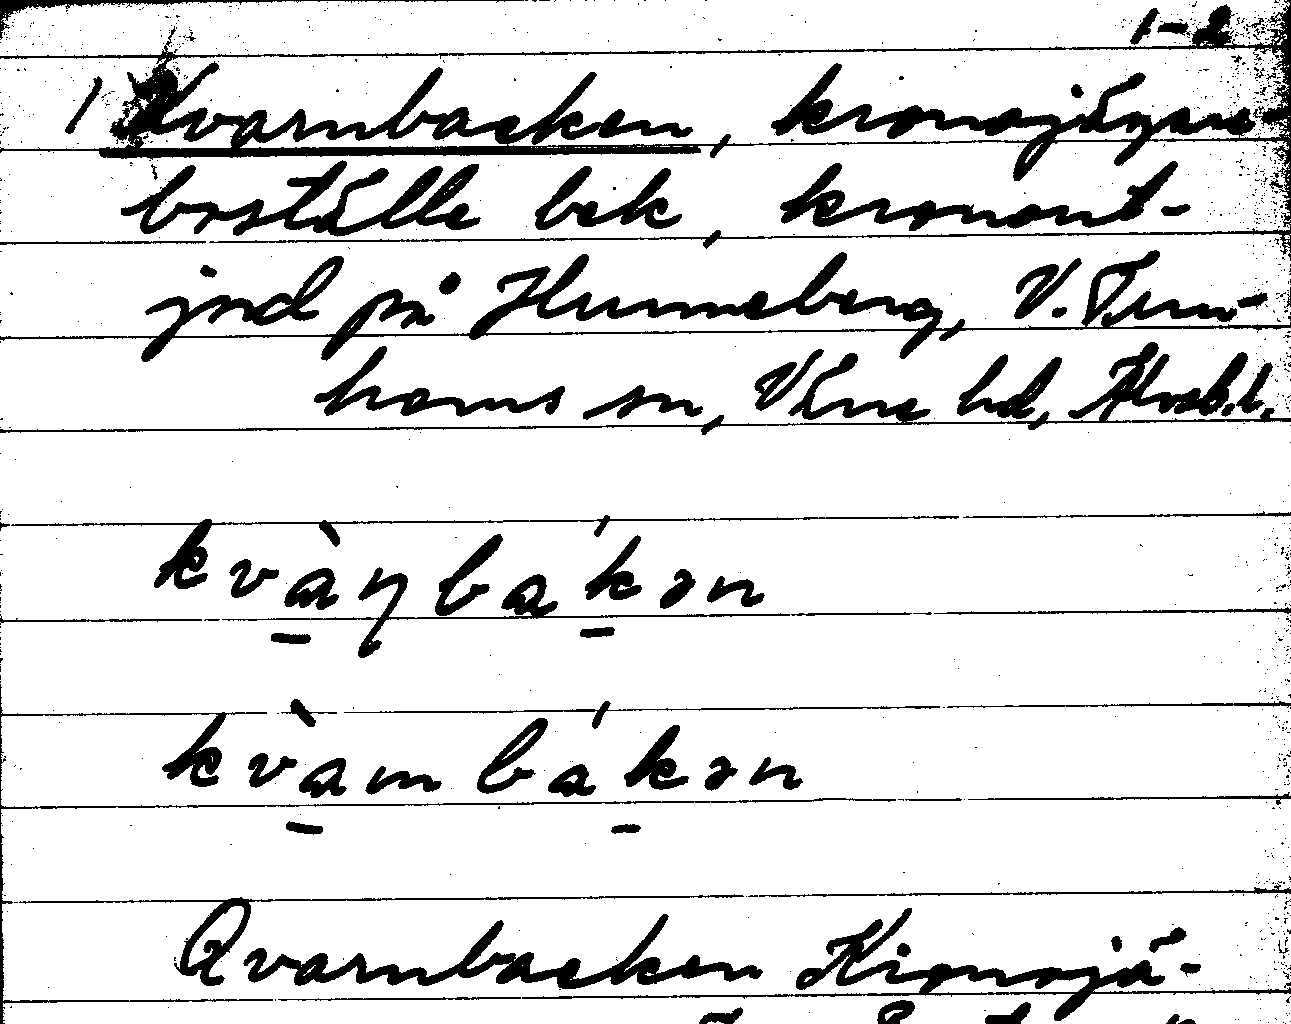 1-2
1 Kvarnbacken, kronojägare-
boställe bek, kronont-
jord på Hunneberg, V. Tun-
hems sn, Väne hd, Älvsb. l.
kvàɳbákən
kvàmbákən
Qvarnbacken Kronojä-